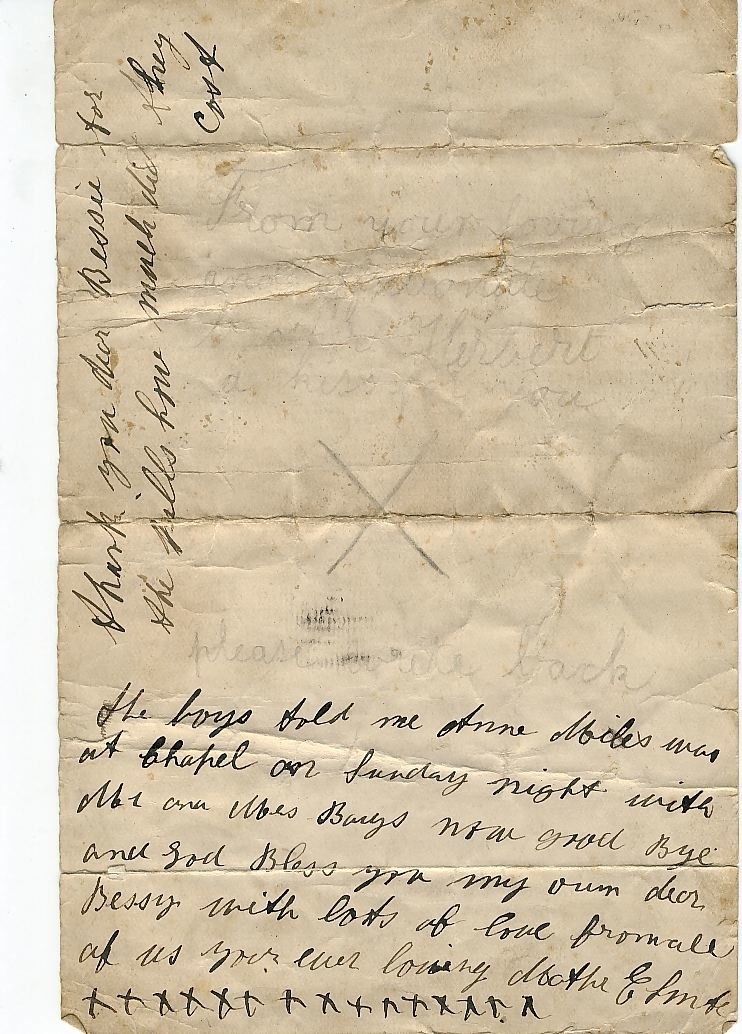 thank you dear Bessie for
the pills how much did they
cost
From your loving
and
Herbert
a kiss you
please write back
the boys told me Anne Miles was
at Chapel on Sunday night with
Mr and Mrs now good Bye
and God Bless you my own dear
Bessy with lots of love from all
of us your ever loving Mothe E